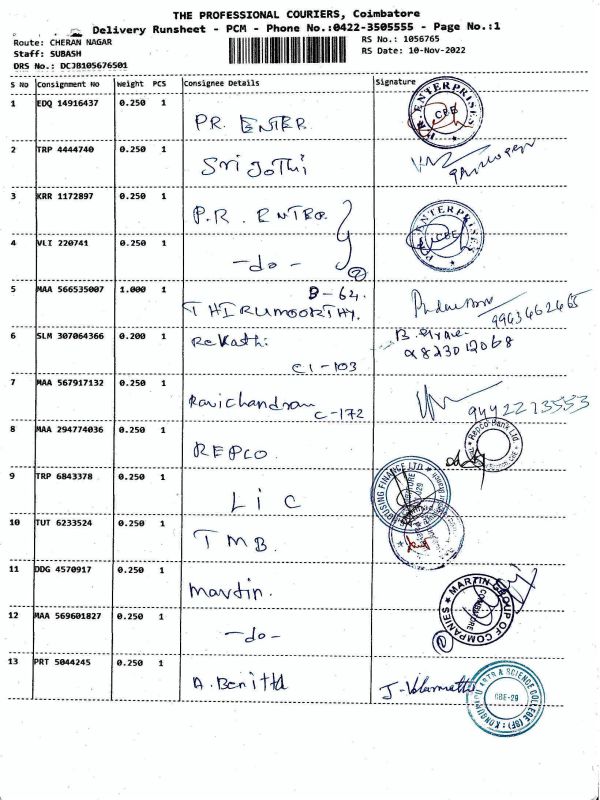 THE PROFESSIONAL COURIERS, Coimbatore
Delivery Runsheet - PCM - Phone No.:0422-3505555 - Page No.:1
Route: CHERAN NAGAR
RS No.: 1056765
Staff: SUBASH
RS Date: 10-Nov-2022
DRS No.: DCJB105676501
S No Consignment No Weight PCS Consignee Details Signature
1 EDQ 14916437 0.250 1 P.R. ENTER P.R. ENTERPRISES CBE
2 TRP 4444740 0.250 1 Sri Jothi
3 KRR 1172897 0.250 1 P.R. ENTER P.R. ENTERPRISES CBE
4 VLI 220741 0.250 1 -do- 2
5 MAA 566535007 1.000 1 B-64. THIRUMOORTHY. 9963462465
6 SLM 307064366 0.200 1 Revathi C1-103 9823012068
7 MAA 567917132 0.250 1 Ravichandran C-172 9442273553
8 MAA 294774036 0.250 1 REPCO Repco Bank Ltd
9 TRP 6843378 0.250 1 LIC HOUSING FINANCE LTD
10 TUT 6233524 0.250 1 TMB.
11 DDG 4570917 0.250 1 Martin. MARTIN GROUP OF COMPANIES COIMBATORE
12 MAA 569601827 0.250 1 -do- 2
13 PRT 5044245 0.250 1 A. Benitta J. Valarmathi ARTS & SCIENCE COLLEGE CBE-29